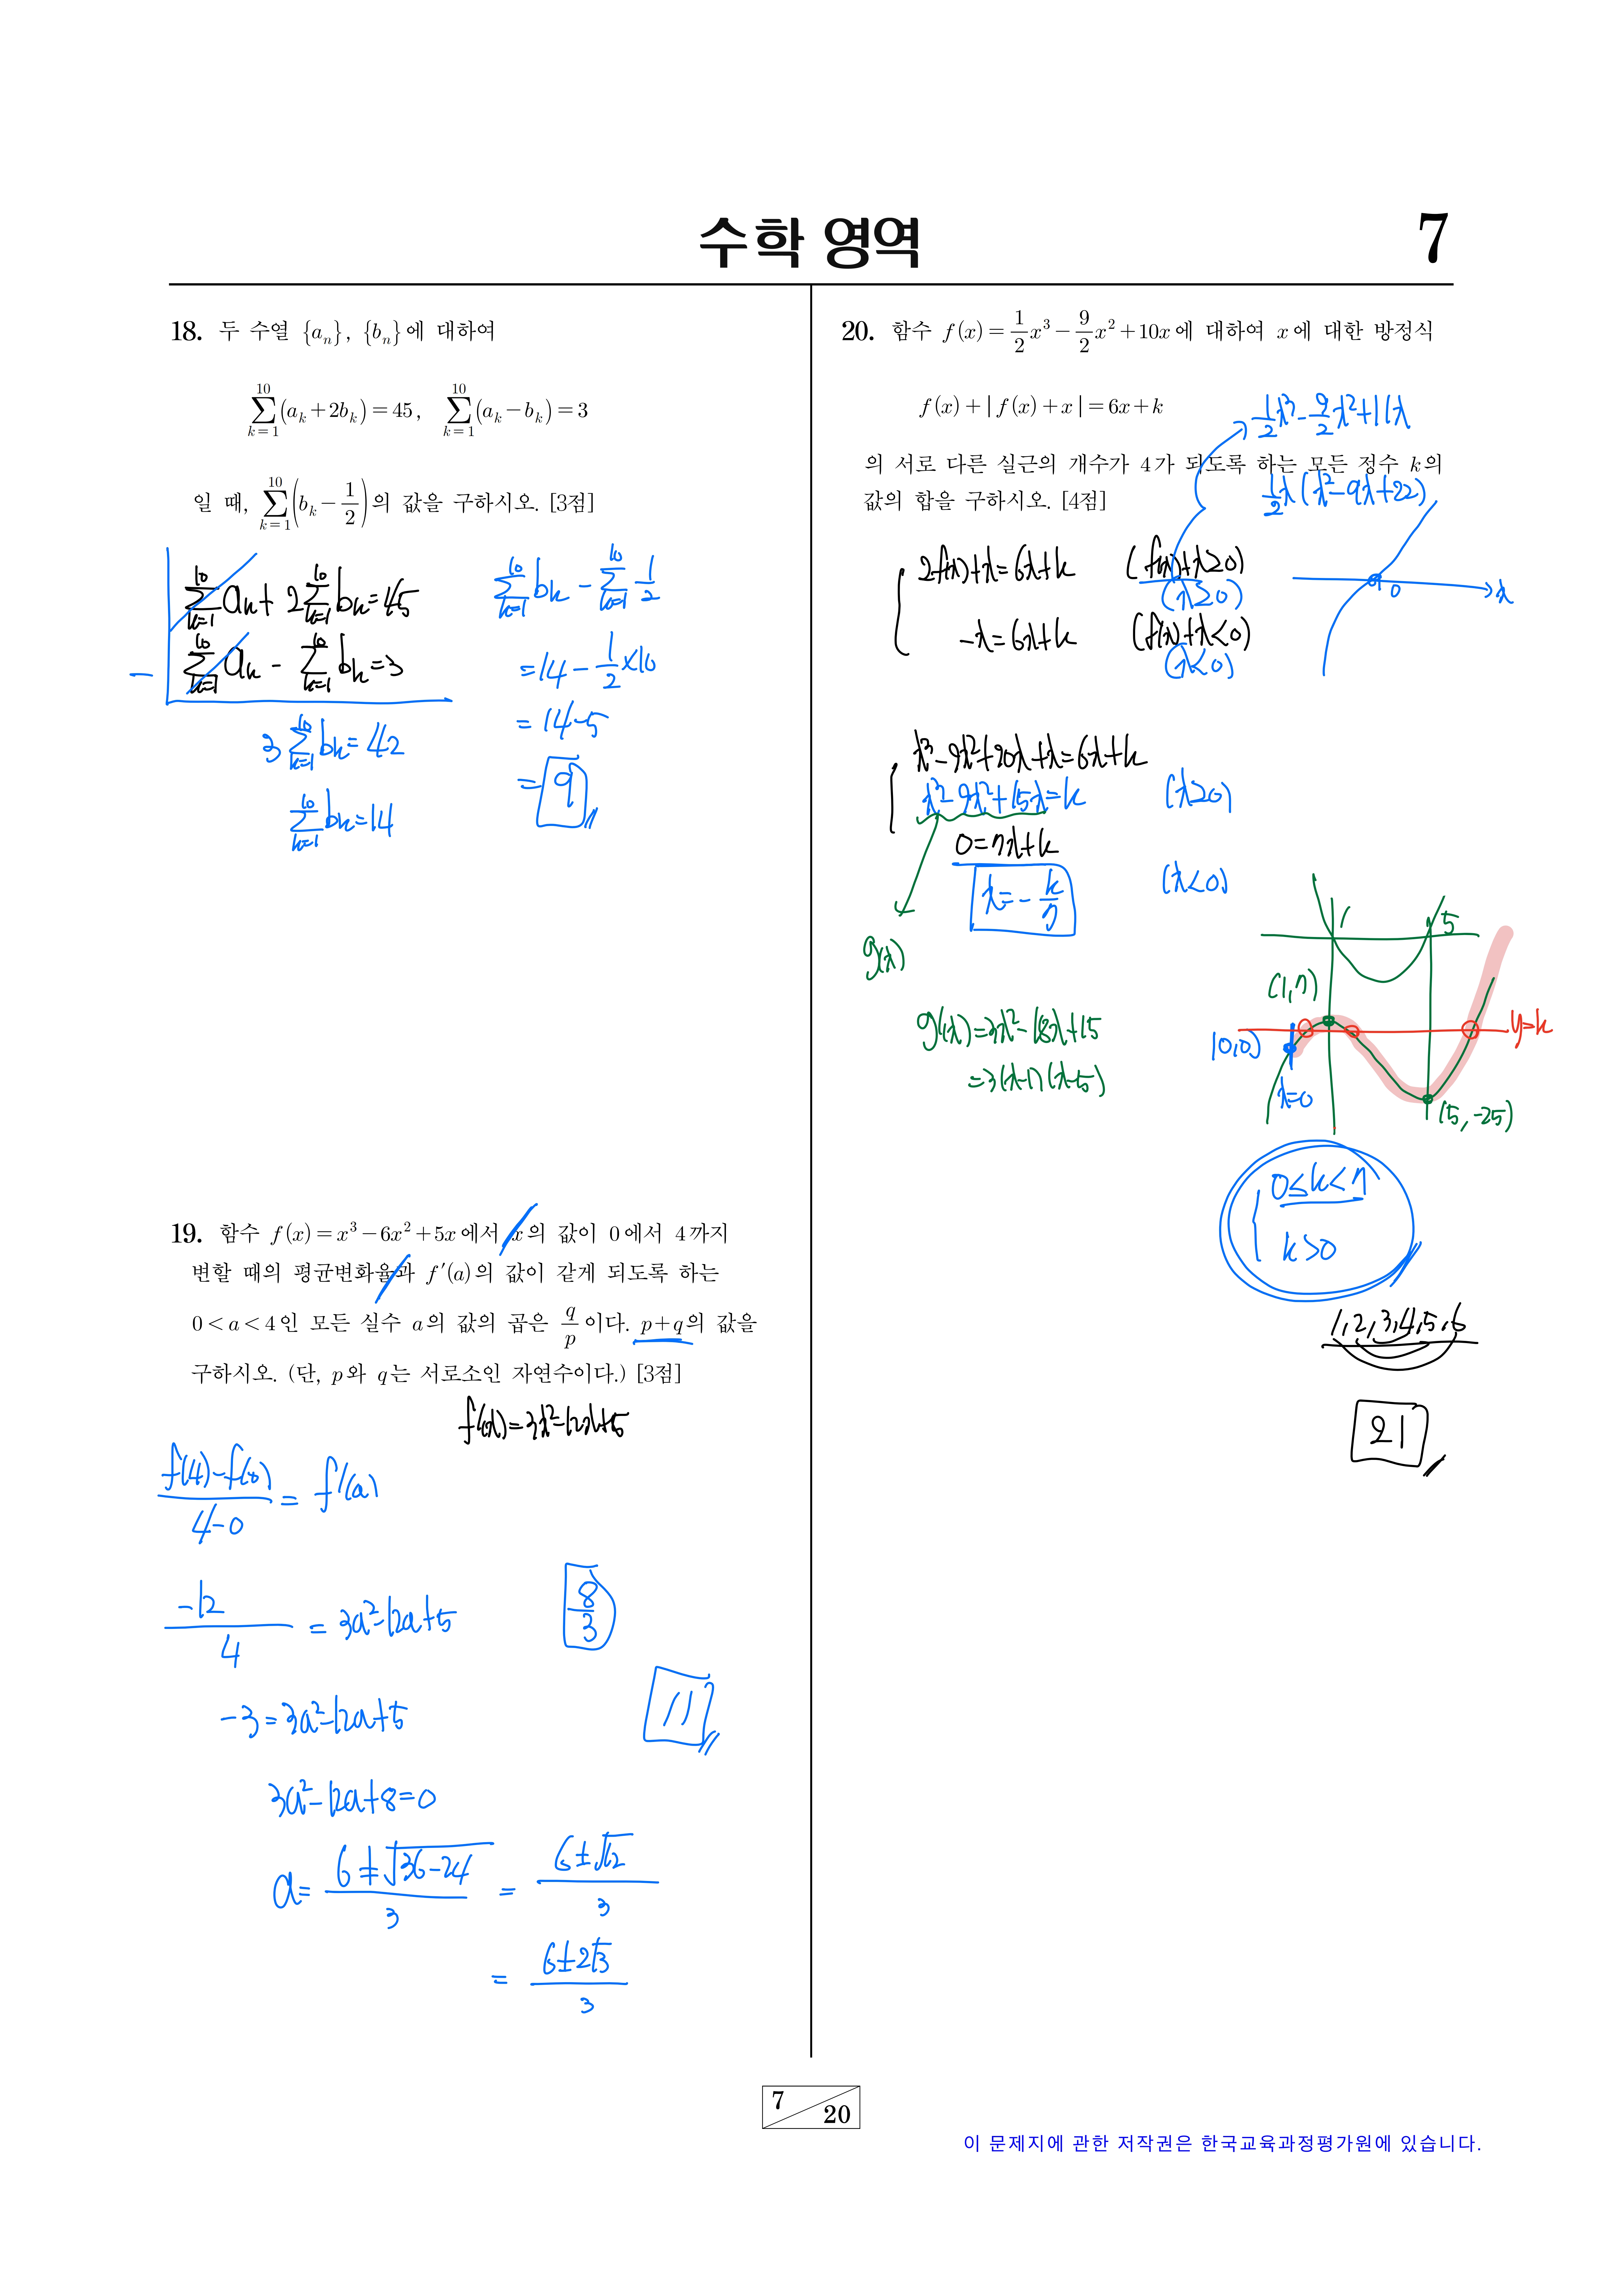 수학 영역
7
18. 두 수열 {aₙ}, {bₙ}에 대하여
∑_{k=1}^{10}(a_k+2b_k)=45, ∑_{k=1}^{10}(a_k-b_k)=3
일 때, ∑_{k=1}^{10}(b_k-1/2)의 값을 구하시오. [3점]
∑_{k=1}^{10}a_k+2∑_{k=1}^{10}b_k=45
- ∑_{k=1}^{10}a_k-∑_{k=1}^{10}b_k=3
3∑_{k=1}^{10}b_k=42
∑_{k=1}^{10}b_k=14
∑_{k=1}^{10}b_k-∑_{k=1}^{10}1/2
=14-1/2×10
=14-5
=9
19. 함수 f(x)=x³-6x²+5x에서 x의 값이 0에서 4까지
변할 때의 평균변화율과 f′(a)의 값이 같게 되도록 하는
0<a<4인 모든 실수 a의 값의 곱은 q/p이다. p+q의 값을
구하시오. (단, p와 q는 서로소인 자연수이다.) [3점]
f′(x)=3x²-12x+5
(f(4)-f(0))/(4-0)=f′(a)
-12/4=3a²-12a+5
-3=3a²-12a+5
3a²-12a+8=0
a=(6±√(36-24))/3=(6±√12)/3
=(6±2√3)/3
8/3
11
20. 함수 f(x)=1/2x³-9/2x²+10x에 대하여 x에 대한 방정식
f(x)+|f(x)+x|=6x+k
의 서로 다른 실근의 개수가 4가 되도록 하는 모든 정수 k의
값의 합을 구하시오. [4점]
1/2x³-9/2x²+11x
1/2x(x²-9x+22)
2f(x)+x=6x+k (f(x)+x≥0)
(x≥0)
-x=6x+k (f(x)+x<0)
(x<0)
0
x
x³-9x²+20x+x=6x+k
x³-9x²+15x=k (x≥0)
0=7x+k
x=-k/7 (x<0)
g(x)
g′(x)=3x²-18x+15
=3(x-1)(x-5)
1
5
(1,7)
(0,0)
x=0
y=k
(5,-25)
0≤k<7
k>0
1,2,3,4,5,6
21
7
20
이 문제지에 관한 저작권은 한국교육과정평가원에 있습니다.